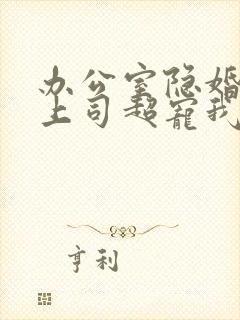 办公室隐婚
上司超宠我
亨利